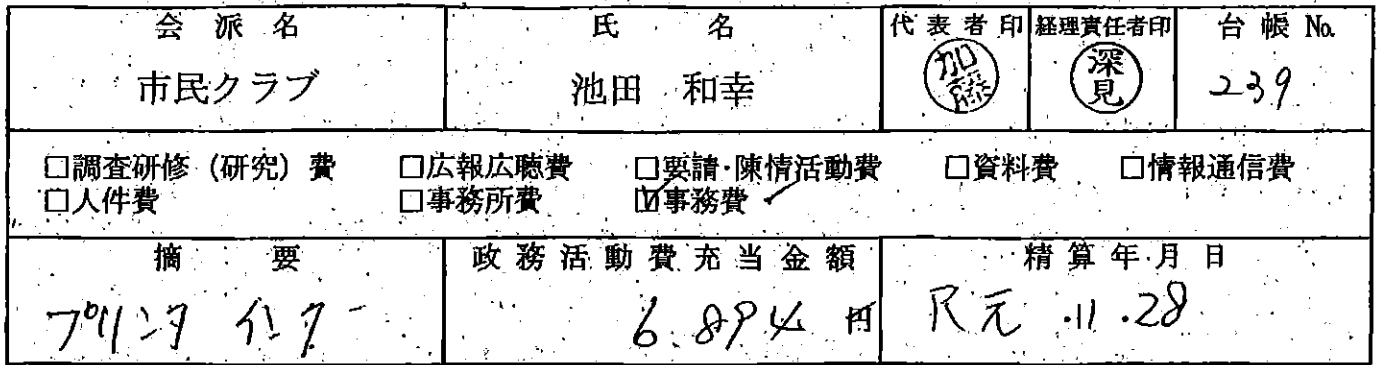 会派名 氏名 代表者印 経理責任者印 台帳No.
市民クラブ 池田 和幸 加藤 深見 239
□調査研修（研究）費 □広報広聴費 □要請・陳情活動費 □資料費 □情報通信費
□人件費 □事務所費 ☑事務費
摘要 政務活動費充当金額 精算年月日
プリンタ インク 6.894 円 R元.11.28